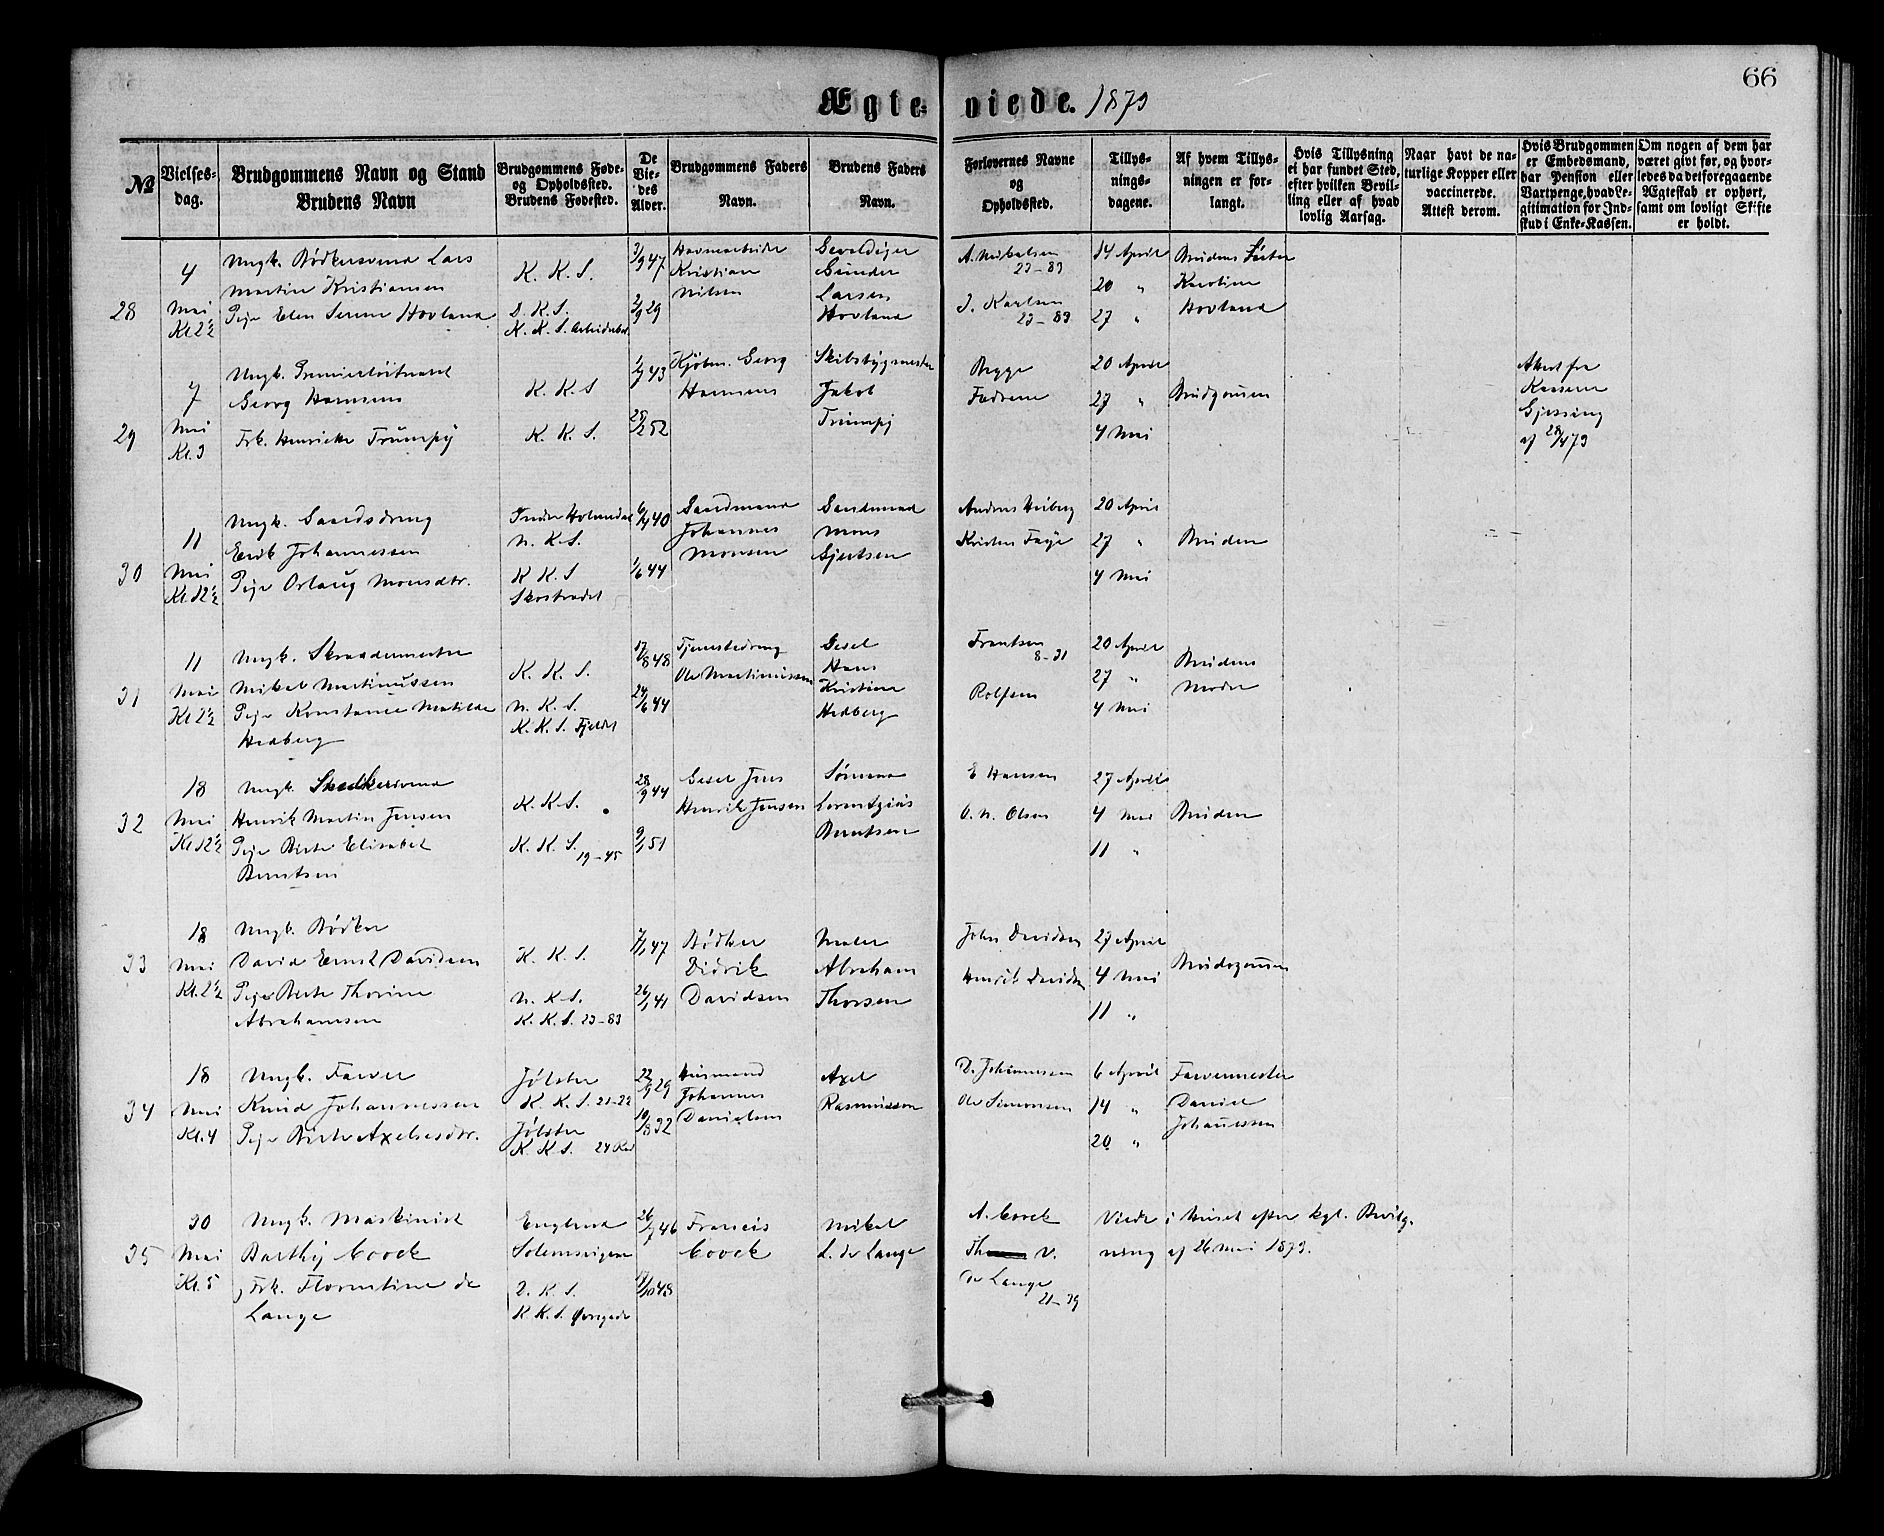 66
Ægte- viede. 1879
No
Vielses-
dag.
Brudgommens Navn og Stand
Brudens Navn
Brudgommens Føde-
og Opholdssted.
Brudens Fødested.
De
Vie-
des
Alder.
Brudgommens Faders
Navn.
Brudens Faders
Navn.
Forlovernes Navne
og
Opholdssted.
Tillys-
nings-
dagene.
Af hvem Tillys-
ningen er for-
langt.
Hvis Tillysning
ei har fundet Sted,
efter hvilken Bevil-
ling eller af hvad
lovlig Aarsag.
Naar havt de na-
turlige Kopper eller
vaccinerede.
Attest derom.
Hvis Brudgommen
er Embedsmand,
har Pension eller
Vartpenge, hvad Le-
gitimation for Ind-
skud i Enke-Kassen.
Om nogen af dem har
været givt før, og hvor-
ledes da det foregaaende
Ægteskab er ophørt,
samt om lovligt Skifte
er holdt.
28
4
Mai
Kl. 2½
Ungk. Bødkersvend Lars
Martin Kristiansen
Pige Elen Serine Hovland
K. K. S.
D. K. S.
K. K. S. Arbeidsh.
3/9 47
2/9 29
Havnearbeider
Kristian
Nilsen
Gevaldiger
Gunder
Larsen
Hovland
A. Mikalsen
23-83
J. Karlsen
23-83
14 April
20 "
27 "
Brudens Søster
Karoline
Hovland
29
7
Mai
Kl. 3
Ungk. Premierløitnant
Georg Hansens
Frk. Henriette Trumpÿ
K. K. S
K. K. S.
43
52
Kjøbm. Georg
Hansens
Skibsbygmester
Jakob
Trumpy
Begge
Fædrene
20 April
27 "
4 Mai
Brudgommen
Attest fra
Kasserer
Gjessing
af 28/4 79
30
11
Mai
Kl. 12½
Ungk. Gaardsdreng
Eerik Johannessen
Pige Orlaug Monsdtr.
n. K. S.
K K. S
Skostredet
40
1/6 44
Gaardmand
Johannes
Monsen
Gaardmand
Mons
Gjertsen
Anders Heiberg
Kristen Faye
20 April
27 "
4 Mai
Bruden
31
11
Mai
Kl 2½
Ungk. Skrædermester
Mikal Martinussen
Pige Konstance Matilde
Hedberg
K. K. S.
n. K. S.
K. K. S. Fjeldet
17/8 48
24/6 44
Tjenestedreng
Ole Martinussen
Gesel
Hans
Kristian
Hedberg
Frantsen
8-31
Rolfsen
20 April
27 "
4 Mai
Brudens
Moder
32
18
Mai
Kl 12½
Ungk. Snedkersvend
Henrik Martin Jensen
Pige Berte Elisabet
Berntsen
K. K. S.
K. K. S. 19-45
28/9 44
9/1 51
Gesel Jens
Henrik Jensen
Sømand
Lorentzius
Berntsen
E Hansen
O. N. Olsen
27 April
4 Mai
11 "
Bruden
33
18
Mai
Kl. 2½
Ungk. Bødker
David Ernst Davidsen
Pige Berte Thorine
Abrahamsen
K. K. S.
n. K. S.
K. K. S. 23-83
7/1 47
26/1 41
Bødker
Didrik
Davidsen
Maler
Abraham
Thorsen
John Davidsen
Henrik Davidsen
27 April
4 Mai
11 "
Brudgommen
34
18
Mai
Kl. 4
Ungk. Farver
Knud Johannessen
Pige Berte Axelsdtr.
Jølster
K. K. S. 21-22
Jølster
K. K S.
22/9 29
10/8 32
Husmand
Johannes
Danielsen
Axel
Rasmussen
D. Johannessen
Ole Simonsen
6 April
14 "
20 "
Farvermester
Daniel
Johanessen
35
30
Mai
Kl. 5
Ungk. Maskinist
Barthy Coock
Frk. Florentine de
Lange
England
D. K. S.
K K. S. Øvregade
26/7 46
48
Francis
Coock
Mikal
L. de Lange
A. Coock
V.
de Lange
21-39
Viede i Huset efter kgl. Bevilg-
ning af 26 Mai 1879.